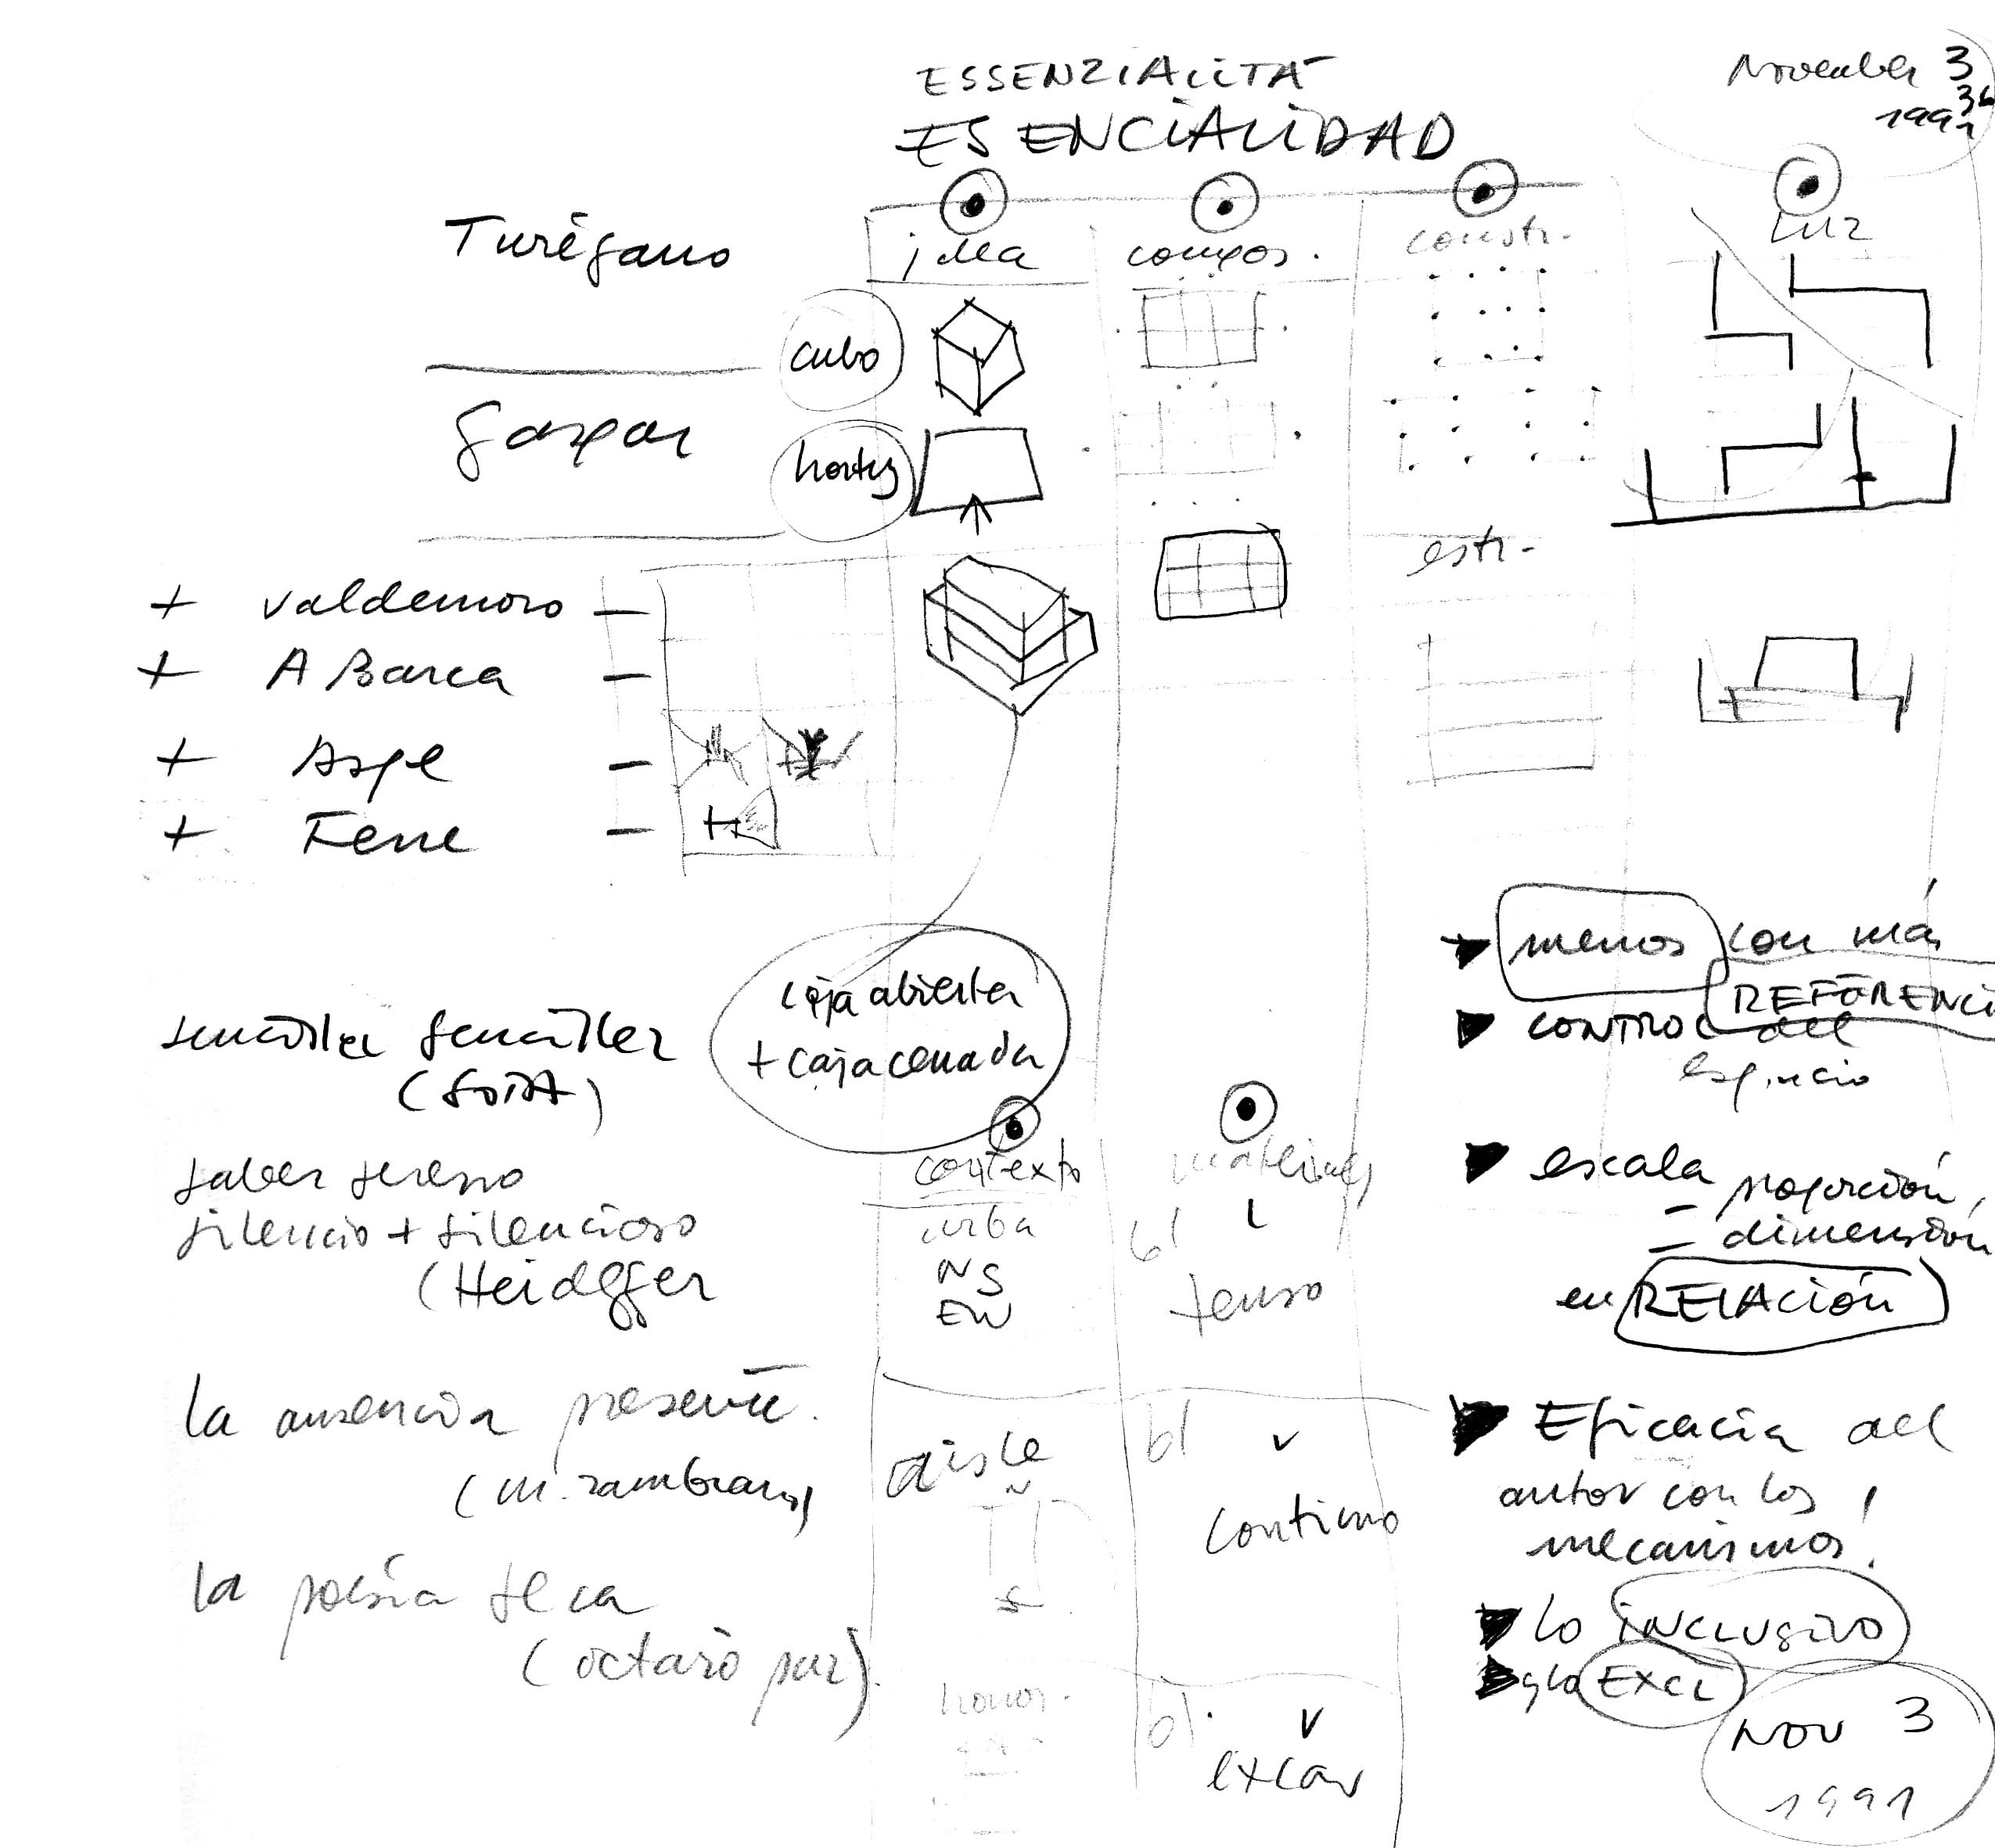 ESSENZIALITÀ
ESENCIALIDAD
November 3
1991
Turégano
idea
compos.
constr.
luz
cubo
Gaspar
hortus
estr.
+ Valdemoro —
+ A Barca —
+ Aspe —
+ Fene —
menos con más
REFERENCI
CONTROL del
espacio
caja abierta
+ caja cerrada
sencillez
(SOTA)
saber sereno
silencio + silencioso
(Heidegger
contexto
urba
NS
EW
materiales
bl
tenso
escala
– proporción,
– dimensión
en RELACIÓN
la ausencia presente.
(M. Zambrano)
aisle
bl v
continuo
Eficacia del
autor con los
mecanismos!
la poesía seca
(octavio paz).
lo INCLUSIVO
y lo EXCL
horiz.
bl. v
excav
NOV 3
1991